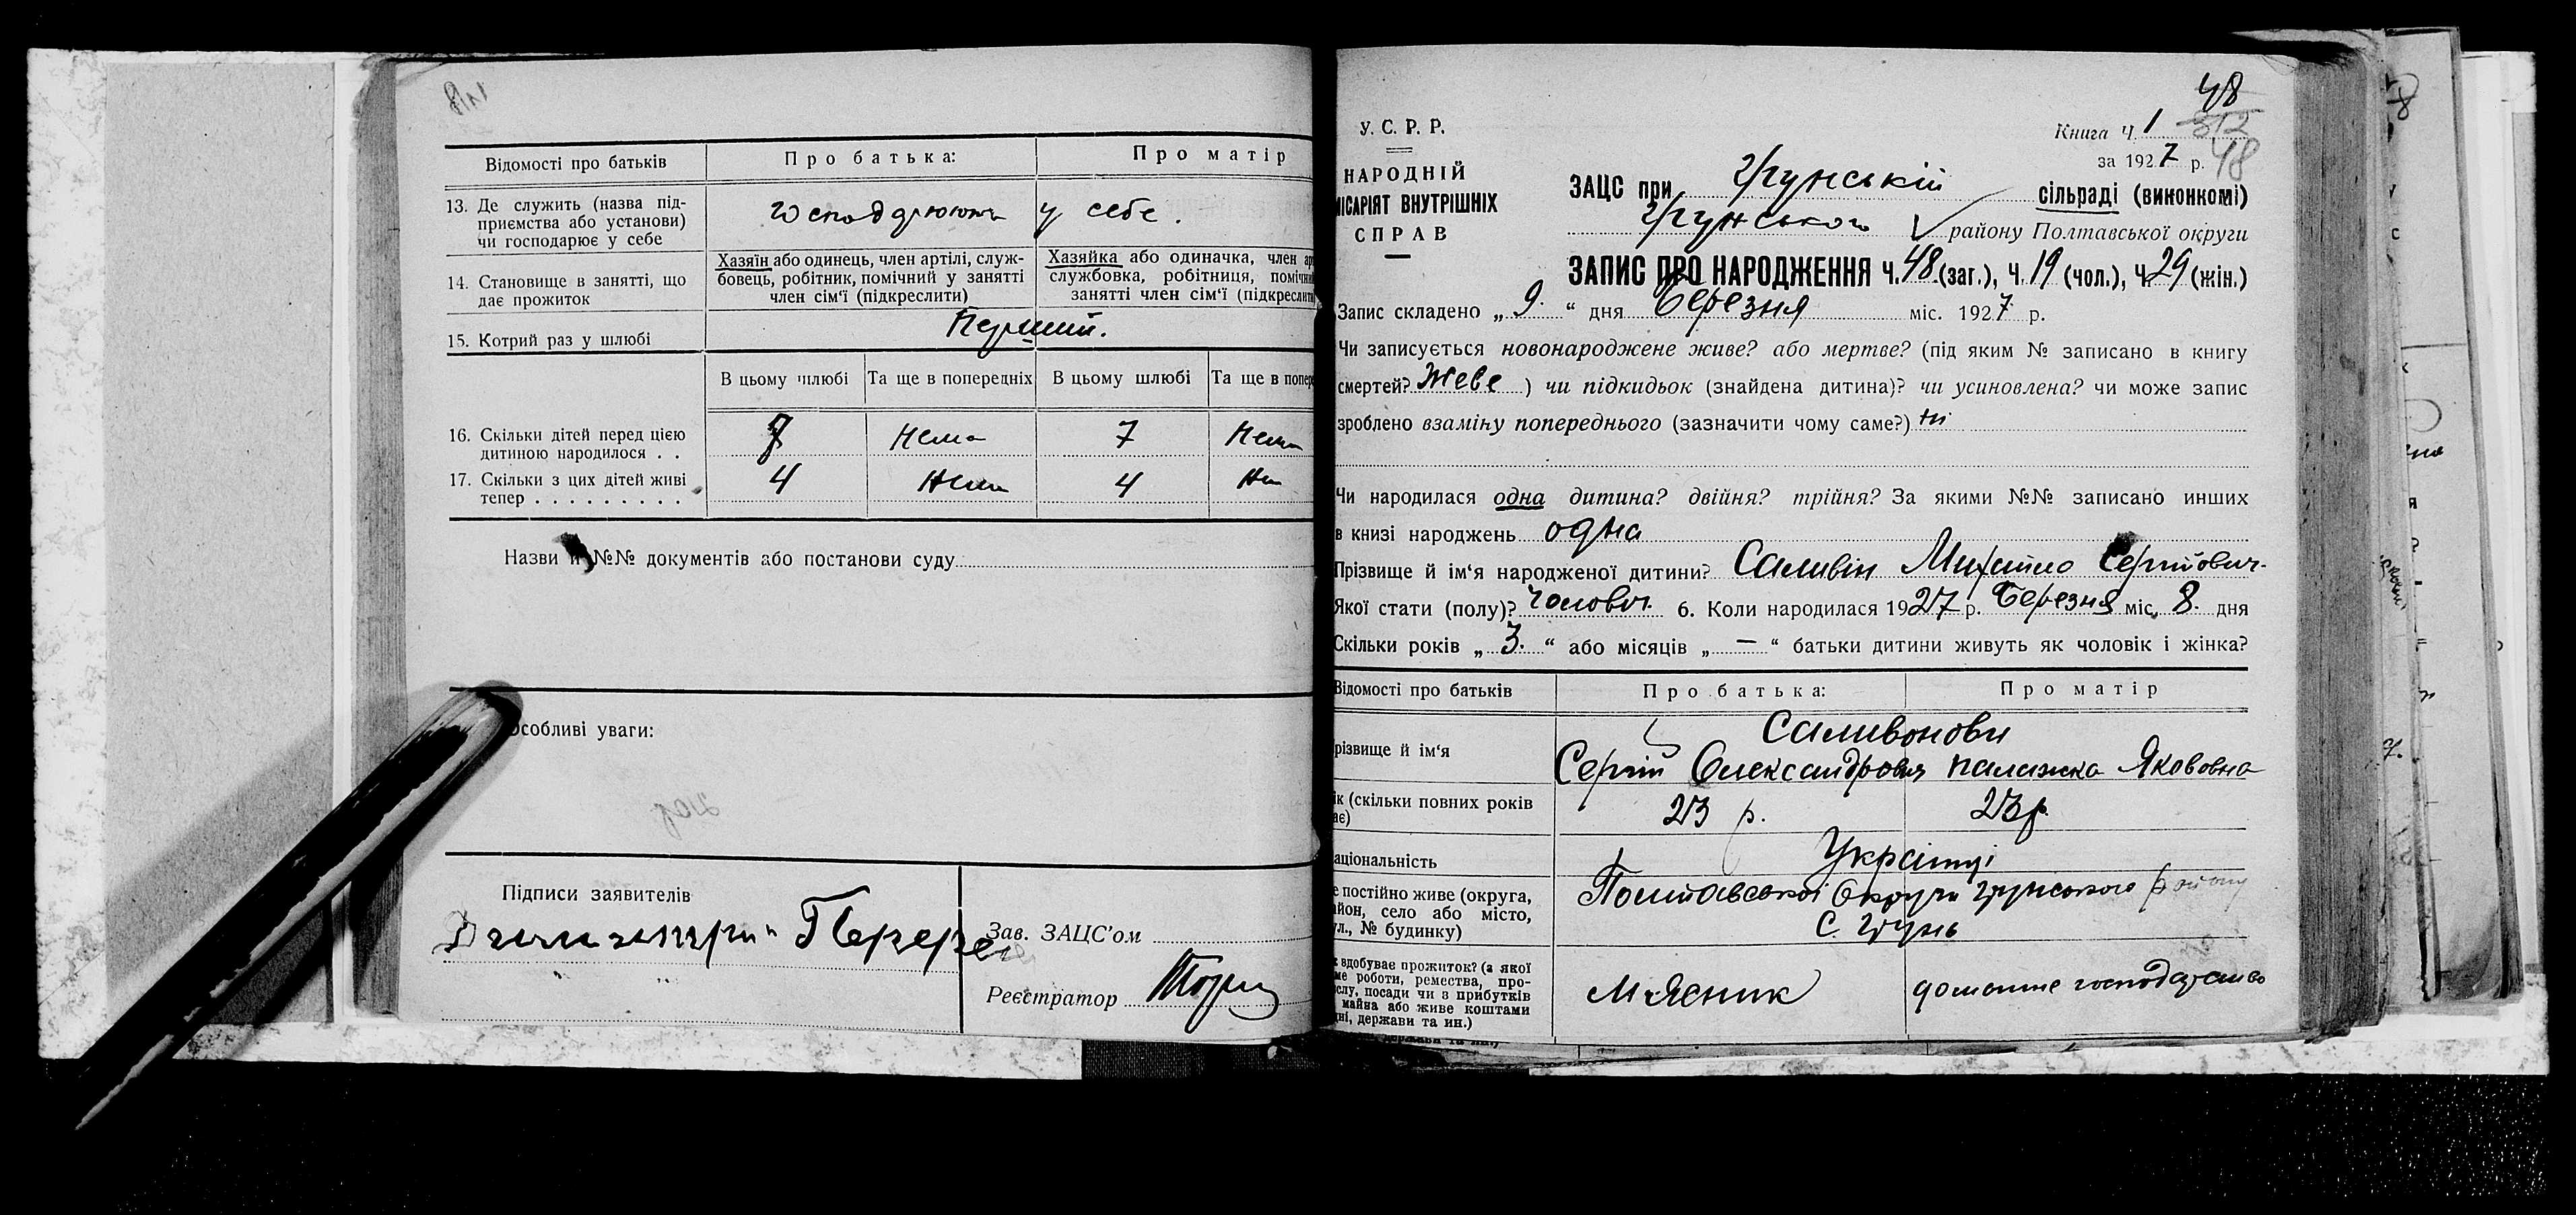 Відомості про батьків
Про батька:
Про матір
13. Де служить (назва під-
приємства або установи)
чи господарює у себе
у себе.
14. Становище в занятті, що
дає прожиток
Хазяїн або одинець, член артілі, служ-
бовець, робітник, помічний у занятті
член сім'ї (підкреслити)
Хазяйка або одиначка, член ар
службовка, робітниця, помічни
занятті член сім'ї (підкреслити
15. Котрий раз у шлюбі
Перший.
В цьому шлюбі
Та ще в попередніх
В цьому шлюбі
Та ще в попере
16. Скільки дітей перед цією
дитиною народилося . .
7
Нема
7
Нема
17. Скільки з цих дітей живі
тепер . . . . . . . . .
4
Нема
4
Назви й №№ документів або постанови суду
Особливі уваги:
Підписи заявителів
Зав. ЗАЦС'ом
Реєстратор
48
У. С. Р. Р.
НАРОДНІЙ
МІСАРІЯТ ВНУТРІШНІХ
СПРАВ
Книга Ч. 1
312
за 1927 р.
48
ЗАЦС при Грунській сільраді (виконкомі)
Грунського району Полтавської округи
ЗАПИС ПРО НАРОДЖЕННЯ Ч. 48 (заг.), Ч. 19 (чол.), Ч. 29 (жін.)
Запис складено „ 9. “ дня Березня міс. 1927 р.
Чи записується новонароджене живе? або мертве? (під яким № записано в книгу
смертей? Живе ) чи підкидьок (знайдена дитина)? чи усиновлена? чи може запис
зроблено взаміну попереднього (зазначити чому саме?) ні
Чи народилася одна дитина? двійня? трійня? За якими №№ записано инших
в книзі народжень одна
Прізвище й ім'я народженої дитини? Саливін Михайло Сергійович
Якої стати (полу)? чолович. 6. Коли народилася 1927 р. Березня міс. 8. дня
Скільки років „ 3. “ або місяців „ — “ батьки дитини живуть як чоловік і жінка?
Відомості про батьків
Про батька:
Про матір
різвище й ім'я
Саливонови
Сергій Олександрович
Палажка Якововна
ік (скільки повних років
ає)
23 р.
23 р.
аціональність
Українці
е постійно живе (округа,
айон, село або місто,
ул., № будинку)
Полтавської Округи Грунського району
с. Грунь
к здобуває прожиток? (з якої
ме роботи, ремества, про-
слу, посади чи з прибутків
майна або живе коштами
дні, держави та ин.)
М'ясник
домашнє господарство